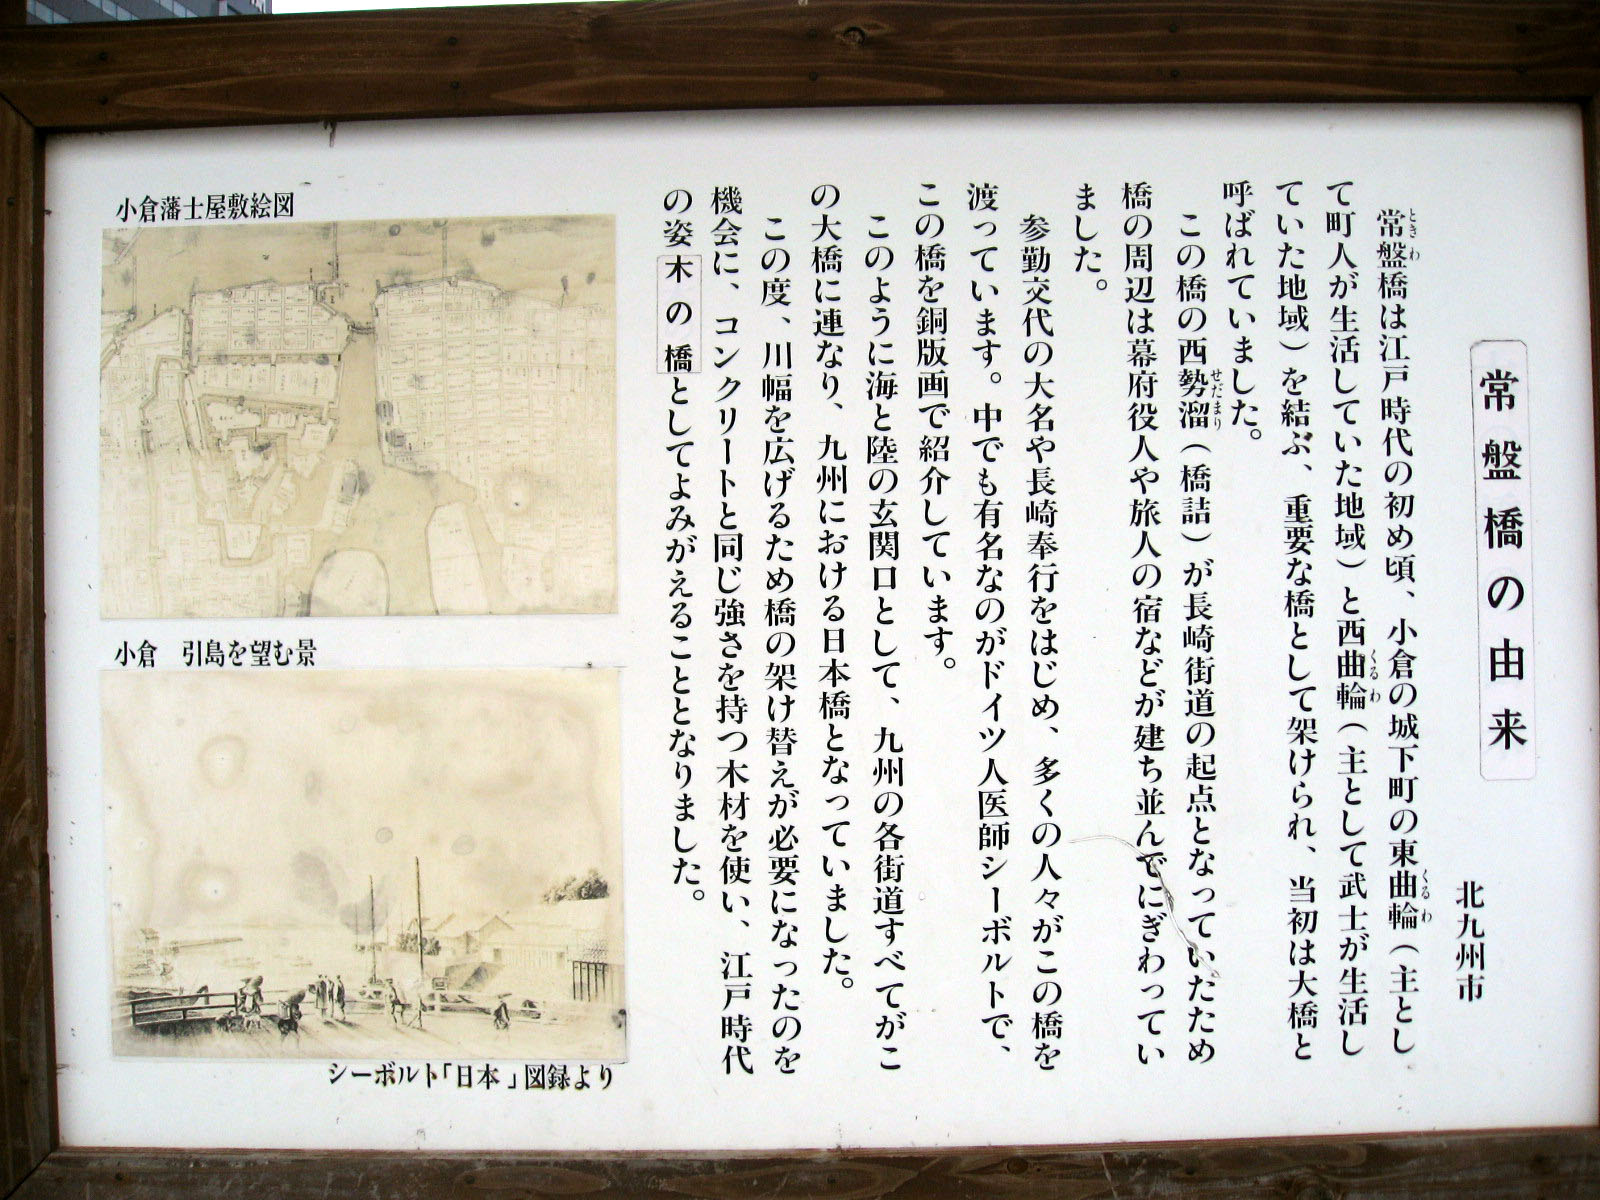 常盤橋の由来
北九州市
常盤橋は江戸時代の初め頃、小倉の城下町の東曲輪（主とし
て町人が生活していた地域）と西曲輪（主として武士が生活し
ていた地域）を結ぶ、重要な橋として架けられ、当初は大橋と
呼ばれていました。
この橋の西勢溜（橋詰）が長崎街道の起点となっていたため
橋の周辺は幕府役人や旅人の宿などが建ち並んでにぎわってい
ました。
参勤交代の大名や長崎奉行をはじめ、多くの人々がこの橋を
渡っています。中でも有名なのがドイツ人医師シーボルトで、
この橋を銅版画で紹介しています。
このように海と陸の玄関口として、九州の各街道すべてがこ
の大橋に連なり、九州における日本橋となっていました。
この度、川幅を広げるため橋の架け替えが必要になったのを
機会に、コンクリートと同じ強さを持つ木材を使い、江戸時代
の姿木の橋としてよみがえることとなりました。
ときわ
くるわ
くるわ
せだまり
小倉藩士屋敷絵図
小倉　引島を望む景
シーボルト「日本」図録より